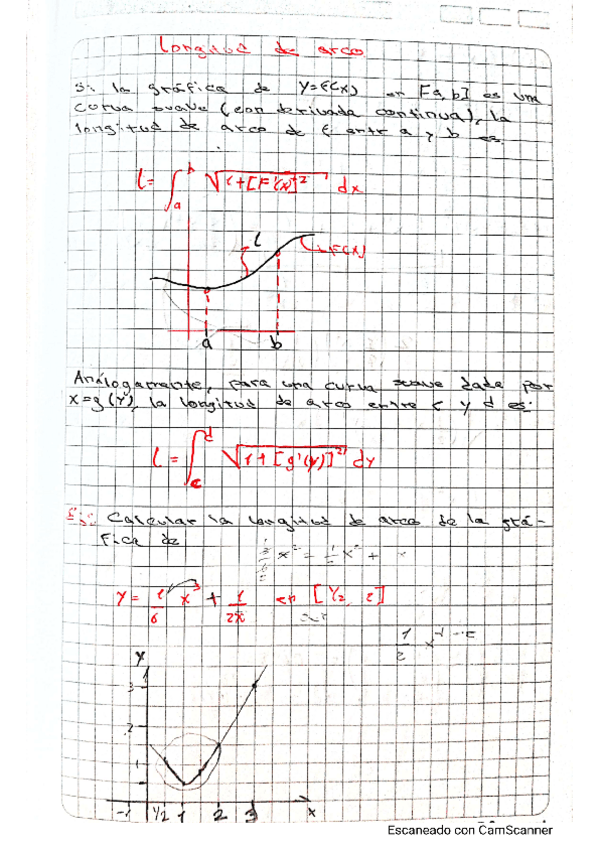 Longitud de arco
Si la gráfica de y=f(x) en [a,b] es una
curva suave (con derivada continua), la
longitud de arco de f entr a y b es
l = ∫ₐᵇ √1+[F'(x)]² dx
l
F(x)
a b
Análogamente, para una curva suave dada por
x=g(y), la longitud de arco entre c y d es:
l = ∫ᶜᵈ √1+[g'(y)]² dy
Ej: Calcular la longitud de arco de la grá-
fica de
y = 1/6 x³ + 1/2x en [1/2, 2]
y
3
2
1
-1 1/2 1 2 3 x
Escaneado con CamScanner